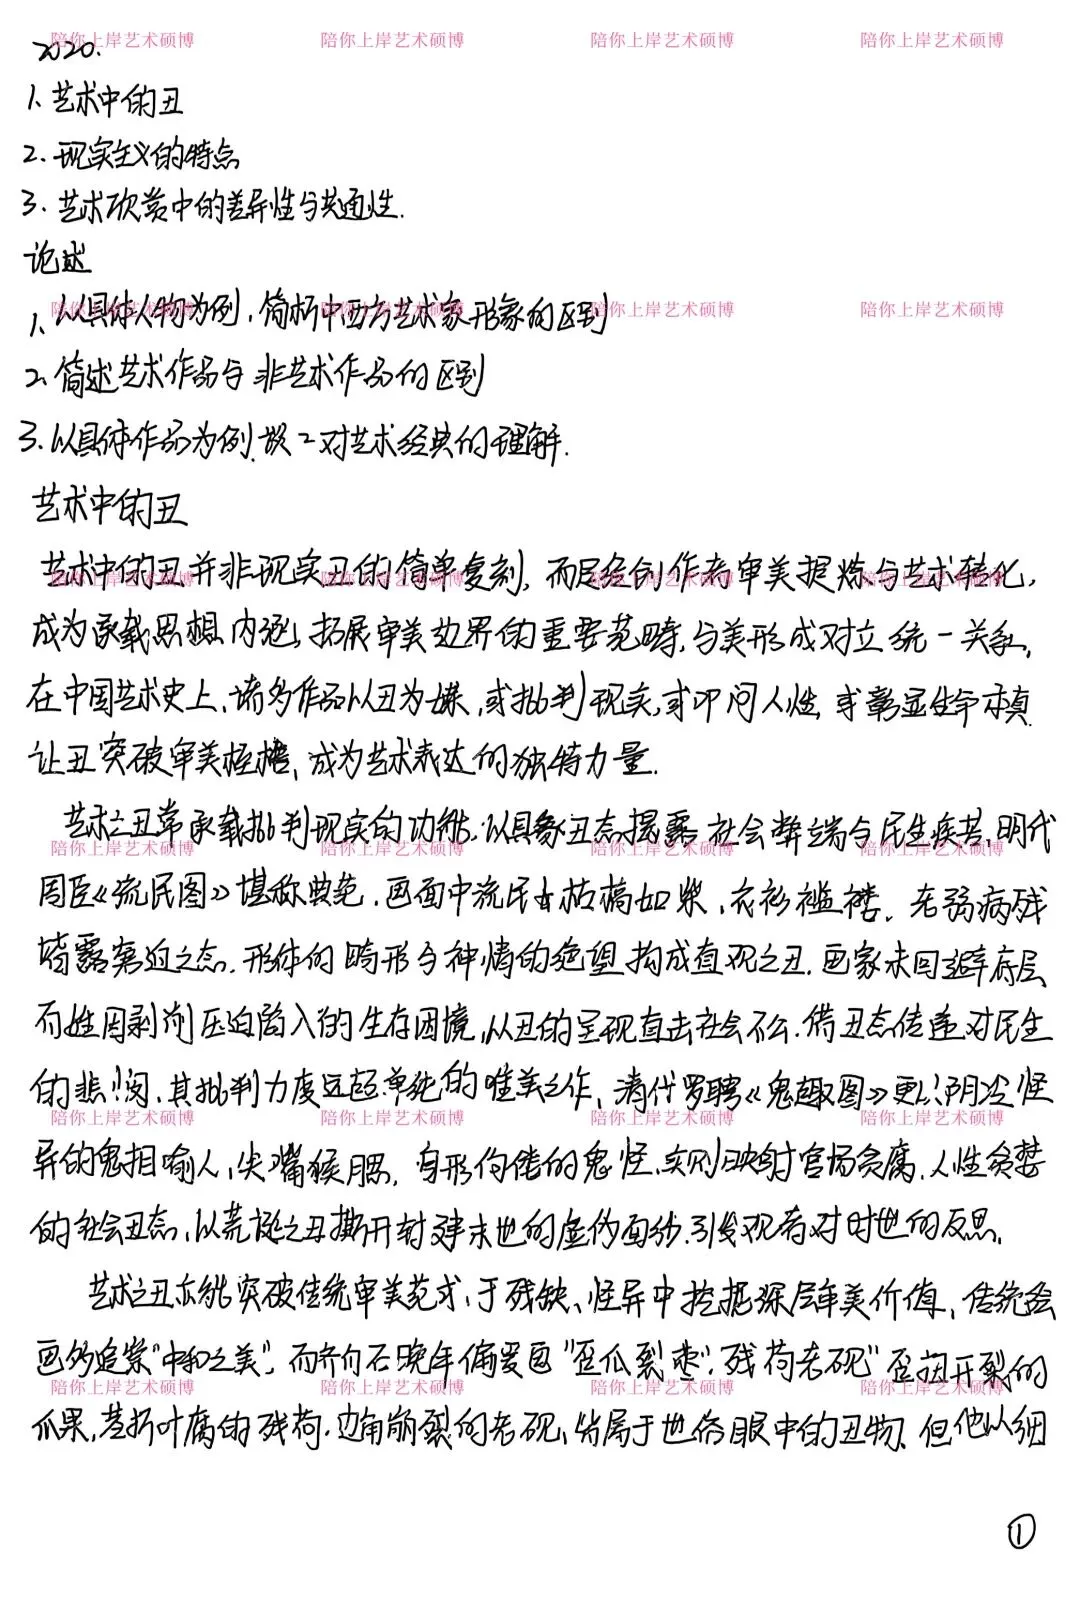 2020.
1. 艺术中的丑
2. 现实主义的特点
3. 艺术欣赏中的差异性与共通性.
论述
1. 以具体人物为例, 简析中西方艺术家形象的区别
2. 简述艺术作品与非艺术作品的区别
3. 以具体作品为例, 谈谈对艺术经典的理解.
艺术中的丑
艺术中的丑并非现实丑的简单复刻, 而是经创作者审美提炼与艺术转化,
成为承载思想内涵, 拓展审美边界的重要范畴, 与美形成对立统一关系,
在中国艺术史上, 诸多作品以丑为媒, 或批判现实, 或叩问人性, 或彰显生命本真
让丑突破审美桎梏, 成为艺术表达的独特力量.
艺术之丑常承载批判现实的功能, 以具象丑态揭露社会弊端与民生疾苦, 明代
周臣《流民图》堪称典范, 画面中流民枯槁如柴, 衣衫褴褛, 老弱病残
皆露窘迫之态, 形体的畸形与神情的绝望构成直观之丑, 画家未回避底层
百姓因剥削压迫陷入的生存困境, 从丑的呈现直击社会不公, 借丑态传递对民生
的悲悯, 其批判力度远超单纯的唯美之作, 清代罗聘《鬼趣图》更以阴冷怪
异的鬼相喻人, 尖嘴猴腮, 身形佝偻的鬼怪, 实则映射官场贪腐, 人性贪婪
的社会丑态, 以荒诞之丑撕开封建末世的虚伪面纱, 引发观者对时世的反思.
艺术之丑亦能突破传统审美范式, 于残缺、怪异中挖掘深层审美价值, 传统绘
画多追崇"中和之美", 而齐白石晚年偏爱画"歪瓜裂枣", 残荷老砚" 歪扭开裂的
瓜果, 茎折叶腐的残荷, 边角崩裂的老砚, 皆属于世俗眼中的丑物, 但他以细
①
陪你上岸艺术硕博